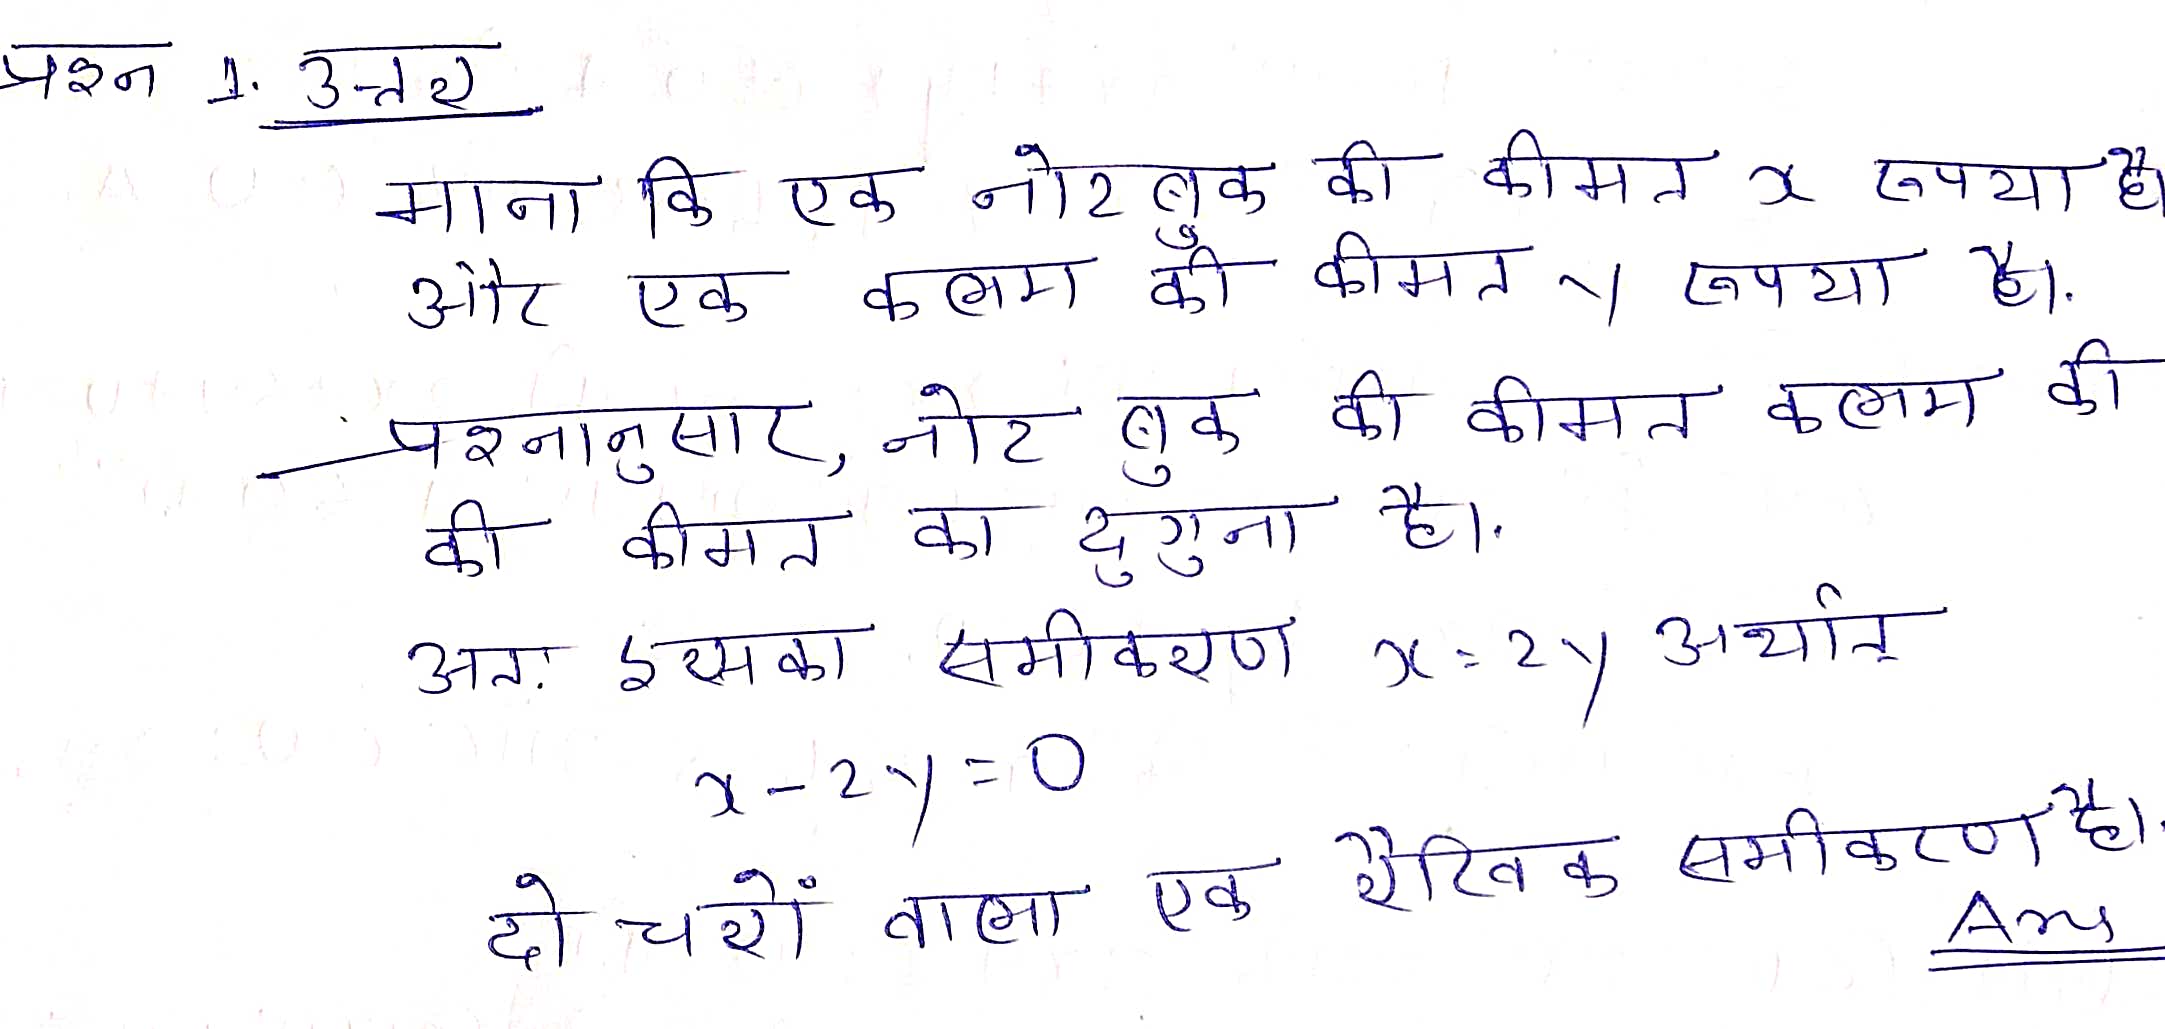 प्रश्न 1. उत्तर
माना कि एक नोटबुक की कीमत x रूपया है।
और एक कलम की कीमत y रूपया है।.
प्रश्नानुसार, नोट बुक की कीमत कलम की
की कीमत का दुगुना है।.
अतः इसका समीकरण x = 2y अर्थात्
x - 2y = 0
दो चरों वाला एक रैखिक समीकरण है।.
Ans